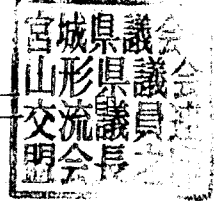 宮城県議会
山形県議会
交流議員連
盟会長之